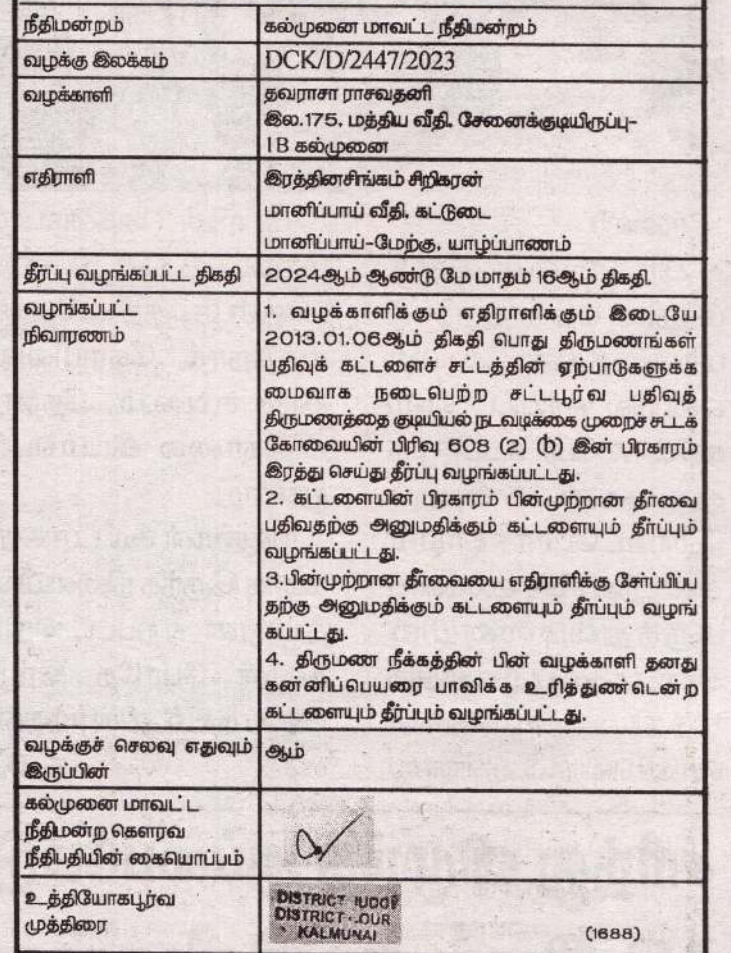 நீதிமன்றம்
கல்முனை மாவட்ட நீதிமன்றம்
வழக்கு இலக்கம்
DCK/D/2447/2023
வழக்காளி
தவராசா ராசவதனி
இல.175, மத்திய வீதி, சேனைக்குடியிருப்பு-
1B கல்முனை
எதிராளி
இரத்தினசிங்கம் சிறிகரன்
மானிப்பாய் வீதி, கட்டுடை
மானிப்பாய்-மேற்கு, யாழ்ப்பாணம்
தீர்ப்பு வழங்கப்பட்ட திகதி
2024ஆம் ஆண்டு மே மாதம் 16ஆம் திகதி.
வழங்கப்பட்ட
நிவாரணம்
1. வழக்காளிக்கும் எதிராளிக்கும் இடையே
2013.01.06ஆம் திகதி பொது திருமணங்கள்
பதிவுக் கட்டளைச் சட்டத்தின் ஏற்பாடுகளுக்க
மைவாக நடைபெற்ற சட்டபூர்வ பதிவுத்
திருமணத்தை குடியியல் நடவடிக்கை முறைச் சட்டக்
கோவையின் பிரிவு 608 (2) (b) இன் பிரகாரம்
இரத்து செய்து தீர்ப்பு வழங்கப்பட்டது.
2. கட்டளையின் பிரகாரம் பின்முற்றான தீர்வை
பதிவதற்கு அனுமதிக்கும் கட்டளையும் தீர்ப்பும்
வழங்கப்பட்டது.
3.பின்முற்றான தீர்வையை எதிராளிக்கு சேர்ப்பிப்ப
தற்கு அனுமதிக்கும் கட்டளையும் தீர்ப்பும் வழங்
கப்பட்டது.
4. திருமண நீக்கத்தின் பின் வழக்காளி தனது
கன்னிப்பெயரை பாவிக்க உரித்துண்டென்ற
கட்டளையும் தீர்ப்பும் வழங்கப்பட்டது.
வழக்குச் செலவு எதுவும்
இருப்பின்
ஆம்
கல்முனை மாவட்ட
நீதிமன்ற கௌரவ
நீதிபதியின் கையொப்பம்
உத்தியோகபூர்வ
முத்திரை
DISTRICT JUDGE
DISTRICT COUR
KALMUNAI
(1688)